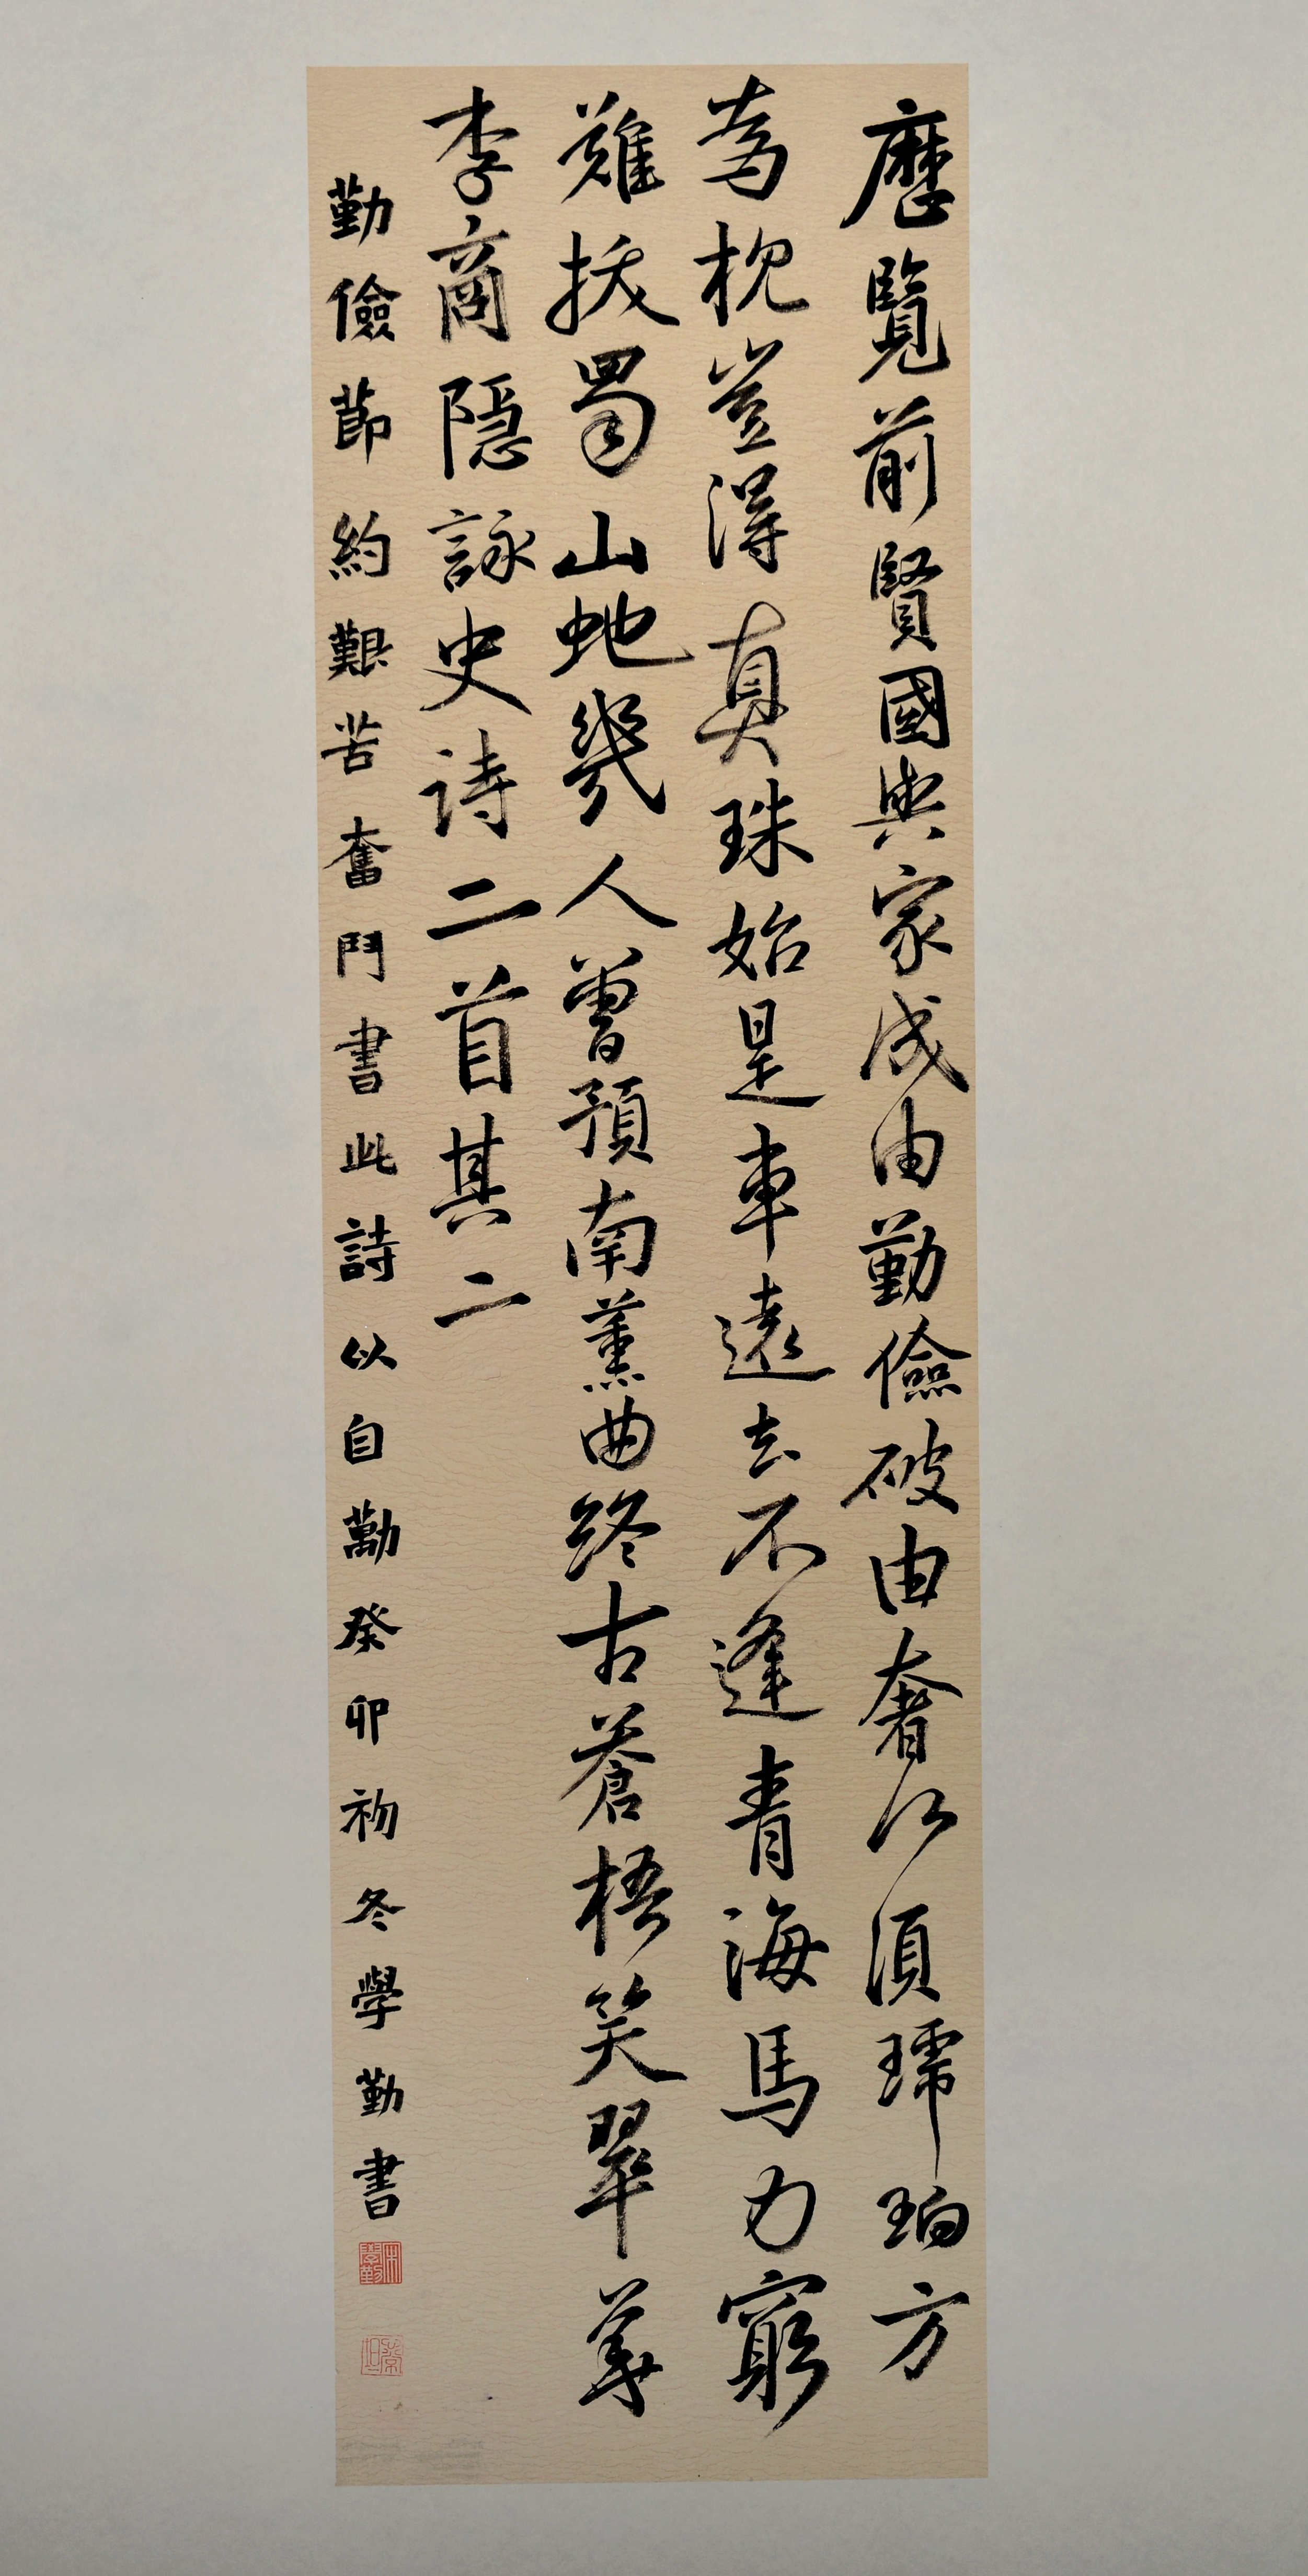 歷覽前賢國與家成由勤儉破由奢何須琥珀方
為枕豈得真珠始是車遠去不逢青海馬力窮
難拔蜀山虵幾人曾預南薰曲終古蒼梧哭翠華
李商隱詠史詩二首其二
勤儉節約艱苦奮鬥書此詩以自勵癸卯初冬學勤書
朱學勤